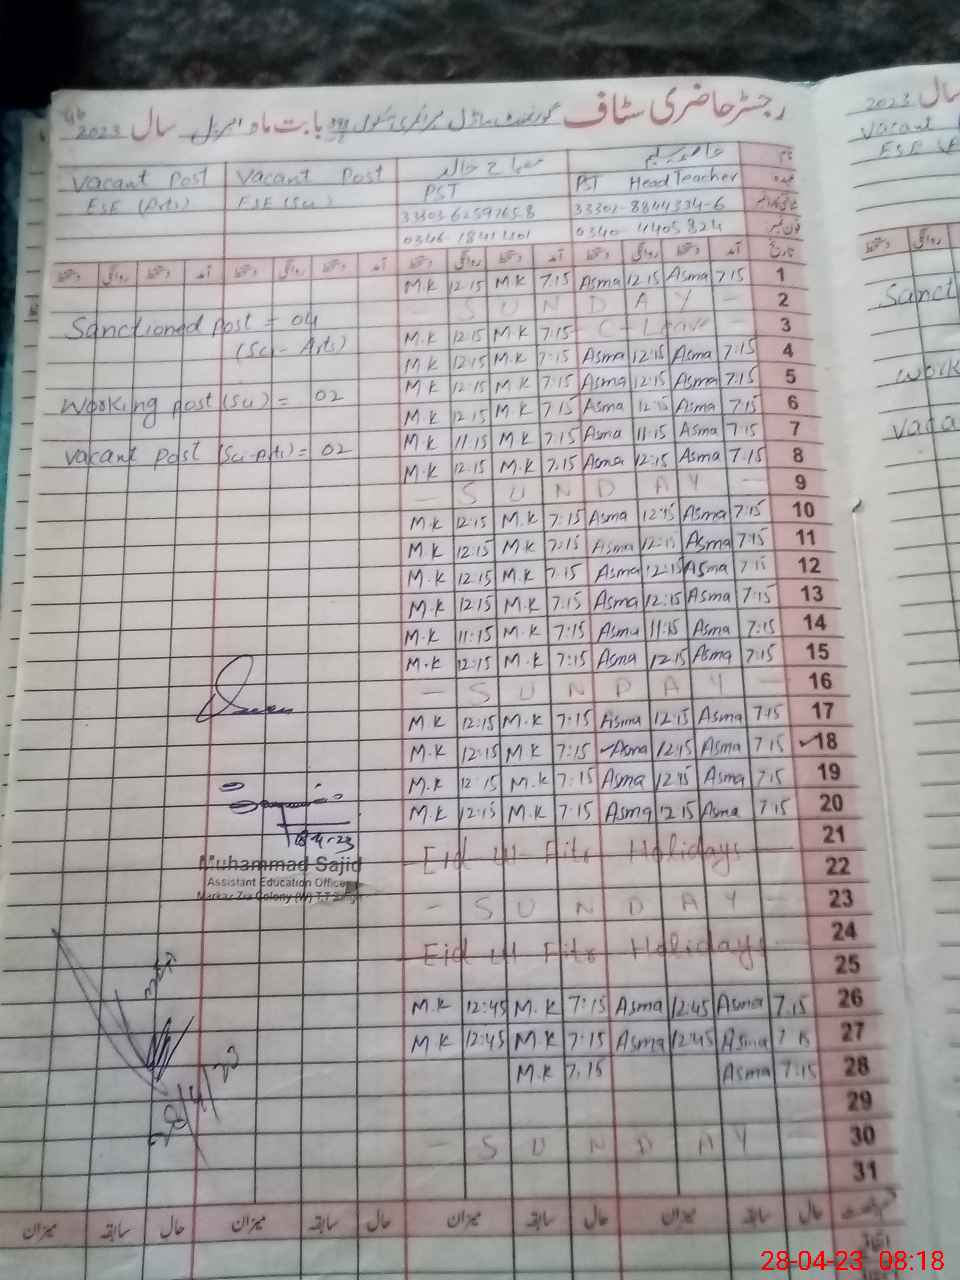 رجسٹر حاضری سٹاف گورنمنٹ ماڈل پرائمری سکول بابت ماہ اپریل سال 2023
نام
Vacant Post Vacant Post
عہدہ PST Head Teacher PST ESE (Arts) ESE (Sci)
33301-8844334-6
فون نمبر 0340-4405824
تاریخ آمد دستخط روانگی دستخط آمد دستخط روانگی دستخط آمد دستخط روانگی دستخط آمد دستخط روانگی دستخط
M.K 12:15 M.K 7:15 Asma 12:15 Asma 7:15 1
- S U N D A Y - 2
Sanctioned post = 04
(Sci - Arts)
M.K 12:15 M.K 7:15 - C - Leave - 3
M.K 12:15 M.K 7:15 Asma 12:15 Asma 7:15 4
M.K 12:15 M.K 7:15 Asma 12:15 Asma 7:15 5
Working post (Sci) = 02
M.K 12:15 M.K 7:15 Asma 12:15 Asma 7:15 6
M.K 11:15 M.K 7:15 Asma 11:15 Asma 7:15 7
Vacant post (Sci-Arts) = 02
M.K 12:15 M.K 7:15 Asma 12:15 Asma 7:15 8
- S U N D A Y - 9
M.K 12:15 M.K 7:15 Asma 12:15 Asma 7:15 10
M.K 12:15 M.K 7:15 Asma 12:15 Asma 7:15 11
M.K 12:15 M.K 7:15 Asma 12:15 Asma 7:15 12
M.K 12:15 M.K 7:15 Asma 12:15 Asma 7:15 13
M.K 11:15 M.K 7:15 Asma 11:15 Asma 7:15 14
M.K 12:15 M.K 7:15 Asma 12:15 Asma 7:15 15
- S U N D A Y - 16
M.K 12:15 M.K 7:15 Asma 12:15 Asma 7:15 17
M.K 12:15 M.K 7:15 Asma 12:15 Asma 7:15 18
M.K 12:15 M.K 7:15 Asma 12:15 Asma 7:15 19
M.K 12:15 M.K 7:15 Asma 12:15 Asma 7:15 20
18-4-23
21
Eid ul Fitr Holidays
22
Muhammad Sajid
Assistant Education Officer
Markaz Zia Colony (W) T.T Singh
- S U N D A Y - 23
24
Eid ul Fitr Holidays
25
M.K 12:45 M.K 7:15 Asma 12:45 Asma 7:15 26
M.K 12:45 M.K 7:15 Asma 12:45 Asma 7:15 27
M.K 7:15 Asma 7:15 28
28/4/23
29
- S U N D A Y - 30
31
حال سابقہ میزان حال سابقہ میزان حال سابقہ میزان حال سابقہ میزان
سال 2023
Vacant
ESE
Sanct
Work
Vaca
28-04-23 08:18